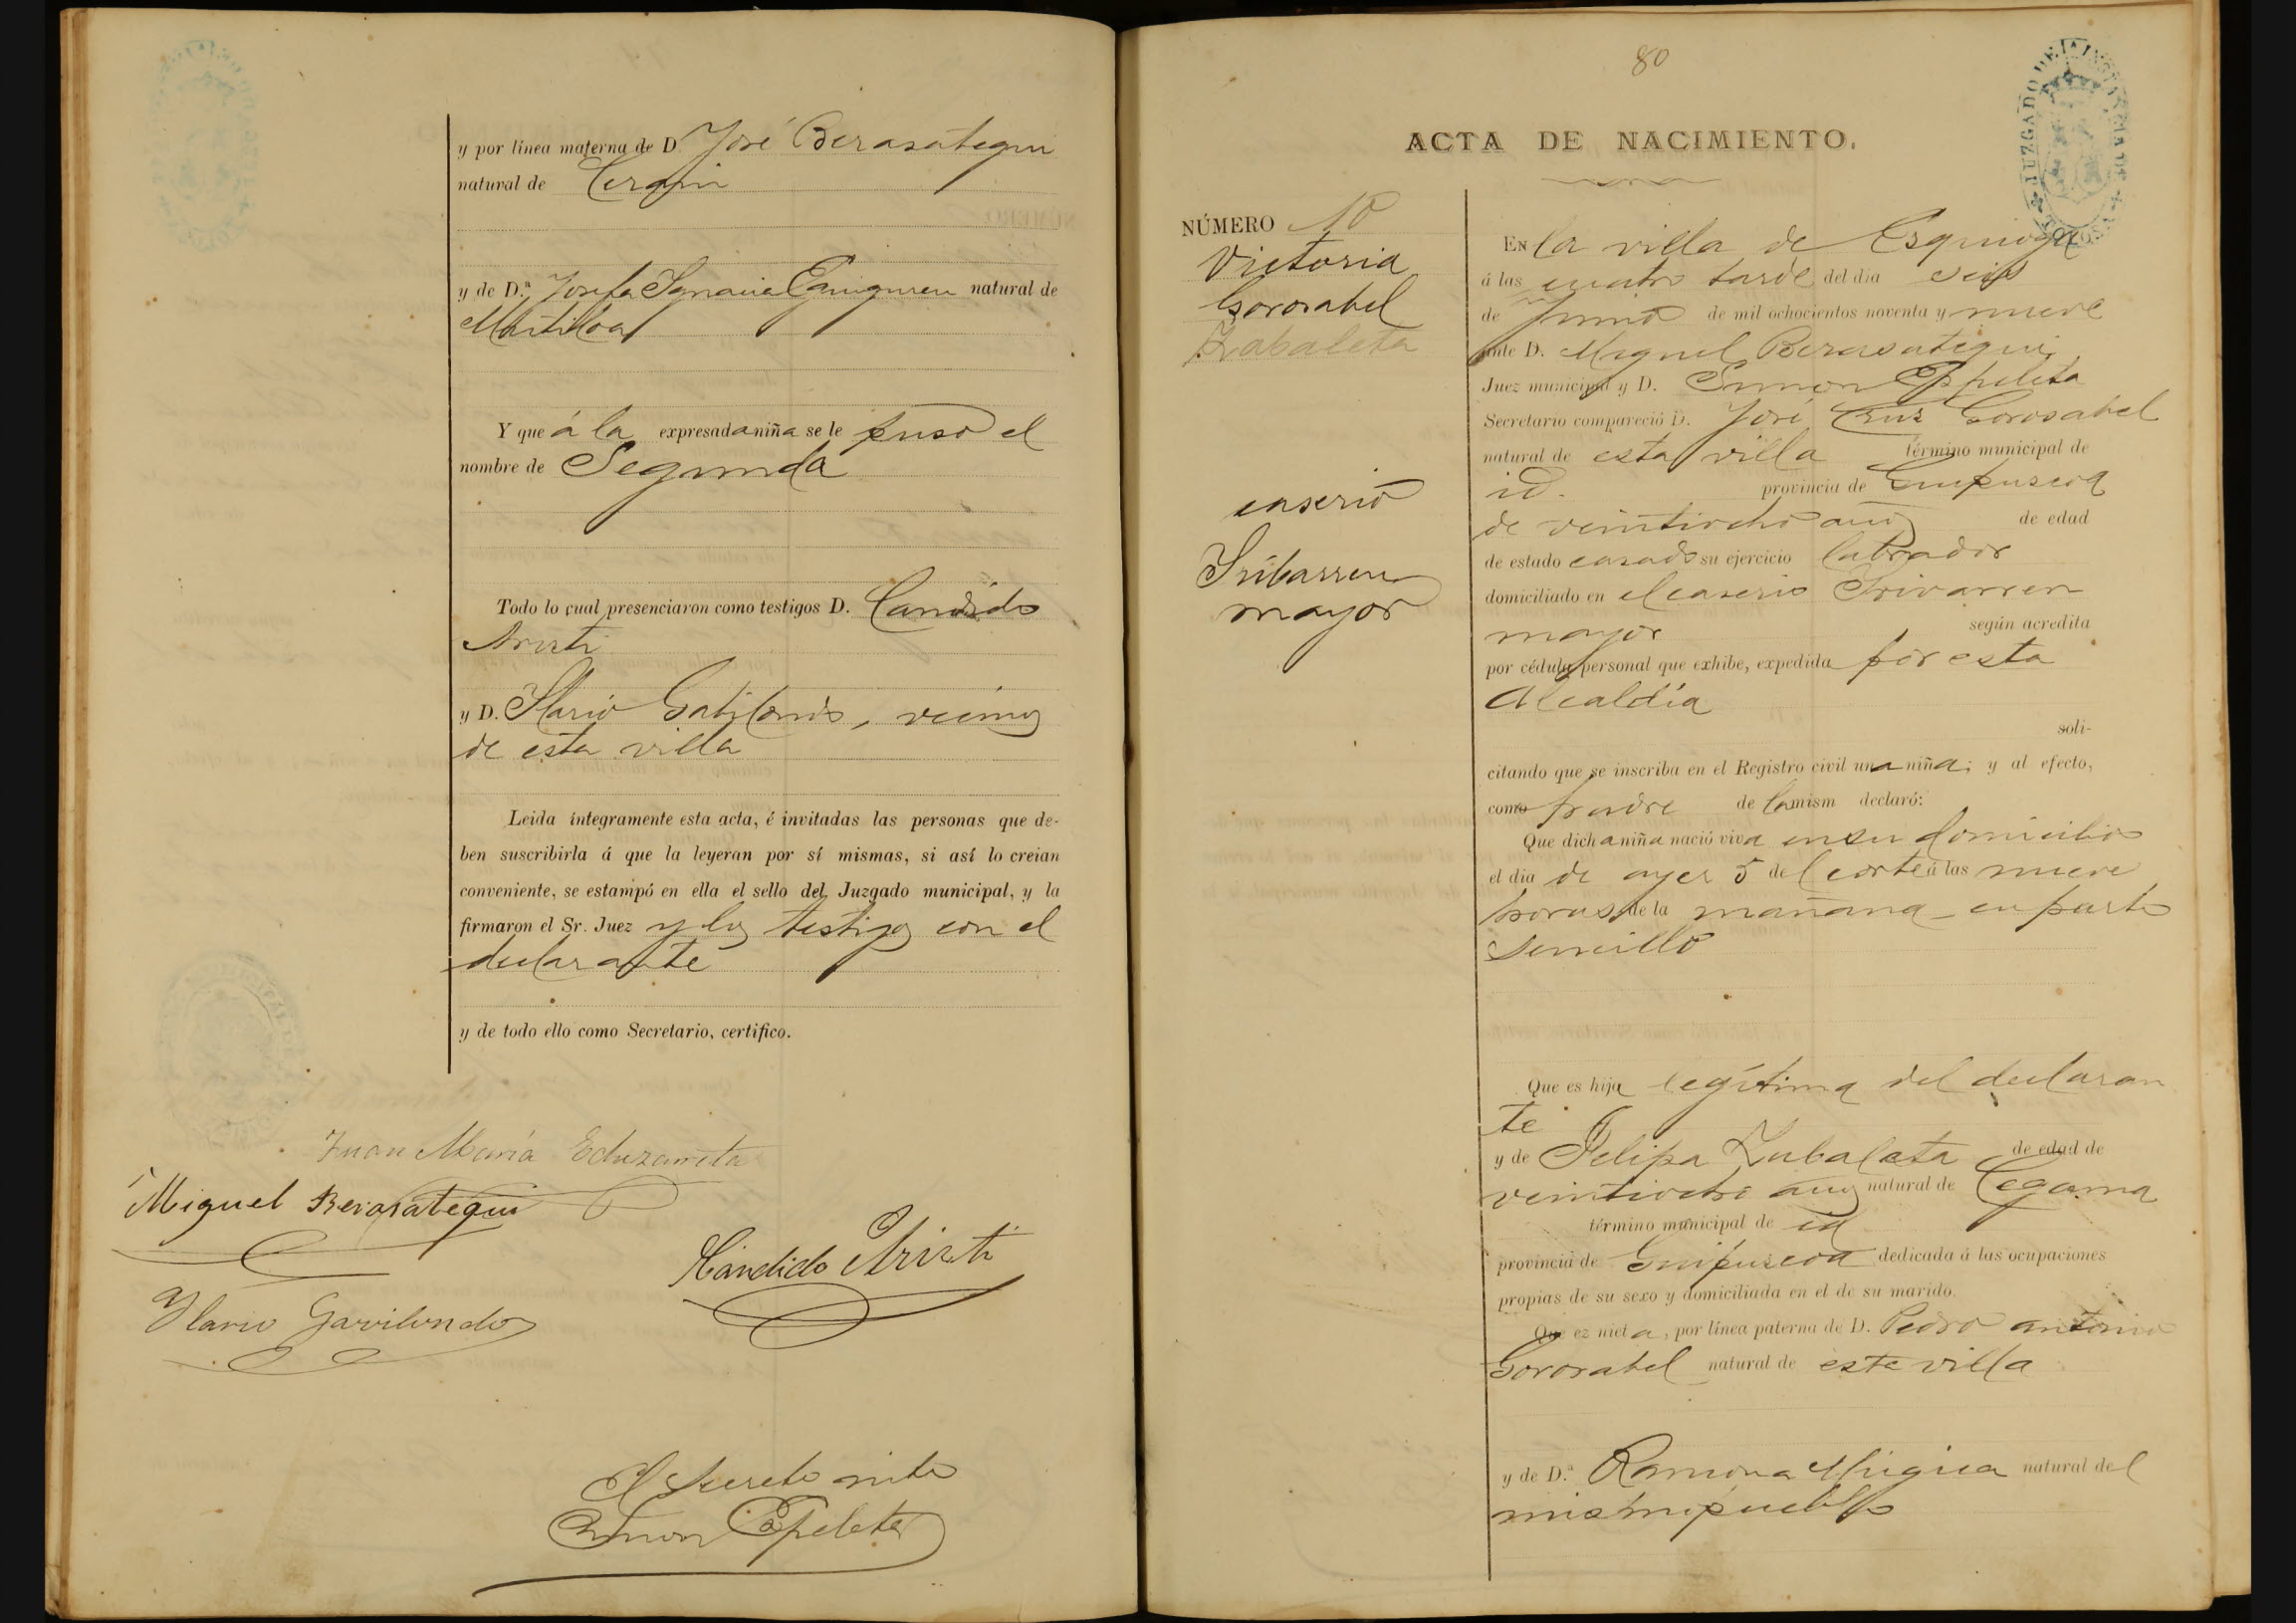 y por línea materna de D. José Berasategui
natural de Cerain
y de D.ª Josefa Ignacia Eguiguren natural de
Mutiloa
Y que á la expresada niña se le puso el
nombre de Segunda
Todo lo cual presenciaron como testigos D. Candido
Aristi
y D. Ilario Gabilondo, vecinos
de esta villa
Leida íntegramente esta acta, é invitadas las personas que de-
ben suscribirla á que la leyeran por sí mismas, si así lo creian
conveniente, se estampó en ella el sello del Juzgado municipal, y la
firmaron el Sr. Juez y los testigos con el
declarante
y de todo ello como Secretario, certifico.
Juan María
Miguel Berasategui
Candido Aristi
Ylario Gavilondo
El Secretario
Simon Ezpeleta
80
ACTA DE NACIMIENTO.
JUZGADO DE
NÚMERO 10
Victoria
Gorosabel
Zabaleta
caserio
Iribarren
mayor
En la villa de Esquioga
á las cuatro tarde del dia seis
de Junio de mil ochocientos noventa y nueve
ante D. Miguel Berasategui
Juez municipal y D. Simon Ezpeleta
Secretario compareció D. José Cruz Gorosabel
natural de esta villa término municipal de
id. provincia de Guipuscoa
de veintiocho años de edad
de estado casado su ejercicio labrador
domiciliado en el caserio Irivarren
mayor según acredita
por cédula personal que exhibe, expedida por esta
Alcaldía
soli-
citando que se inscriba en el Registro civil una niña; y al efecto,
como padre de la mism declaró:
Que dicha niña nació viva en su domicilio
el dia de ayer 5 del corte á las nueve
horas de la mañana en parto
sencillo
Que es hija legítima del declaran
te
y de Felipa Zabaleta de edad de
veintiocho años natural de Cegama
término municipal de id
provincia de Guipuscoa dedicada á las ocupaciones
propias de su sexo y domiciliada en el de su marido.
Que ez nieta, por línea paterna de D. Pedro Antonio
Gorosabel natural de esta villa
y de D.ª Ramona Mugica natural del
mismo pueblo